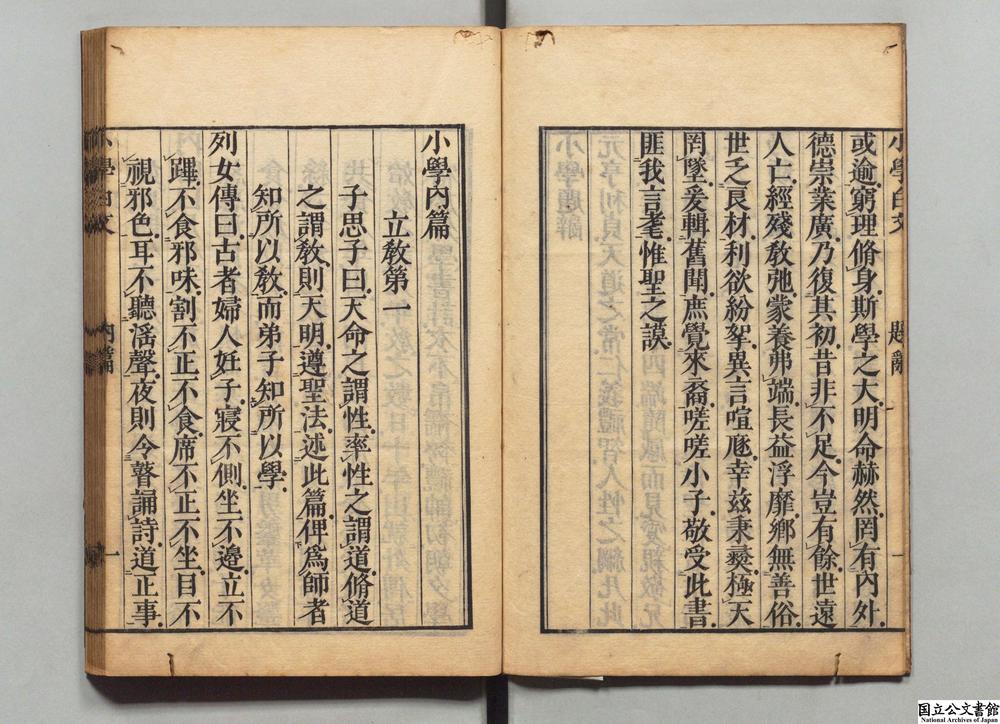 小學白文 題辭 一
或逾窮理脩身斯學之大明命赫然罔有內外
德崇業廣乃復其初昔非不足今豈有餘世遠
人亡經殘敎弛蒙養弗端長益浮靡鄉無善俗
世乏良材利欲紛挐異言喧豗幸兹秉彜極天
罔墜爰輯舊聞庶覺來裔嗟嗟小子敬受此書
匪我言耄惟聖之謨
小學內篇
立敎第一
子思子曰天命之謂性率性之謂道脩道
之謂敎則天明遵聖法述此篇俾爲師者
知所以敎而弟子知所以學
列女傳曰古者婦人妊子寢不側坐不邊立不
蹕不食邪味割不正不食席不正不坐目不
視邪色耳不聽淫聲夜則令瞽誦詩道正事
小學白文 內篇 一
国立公文書館
National Archives of Japan